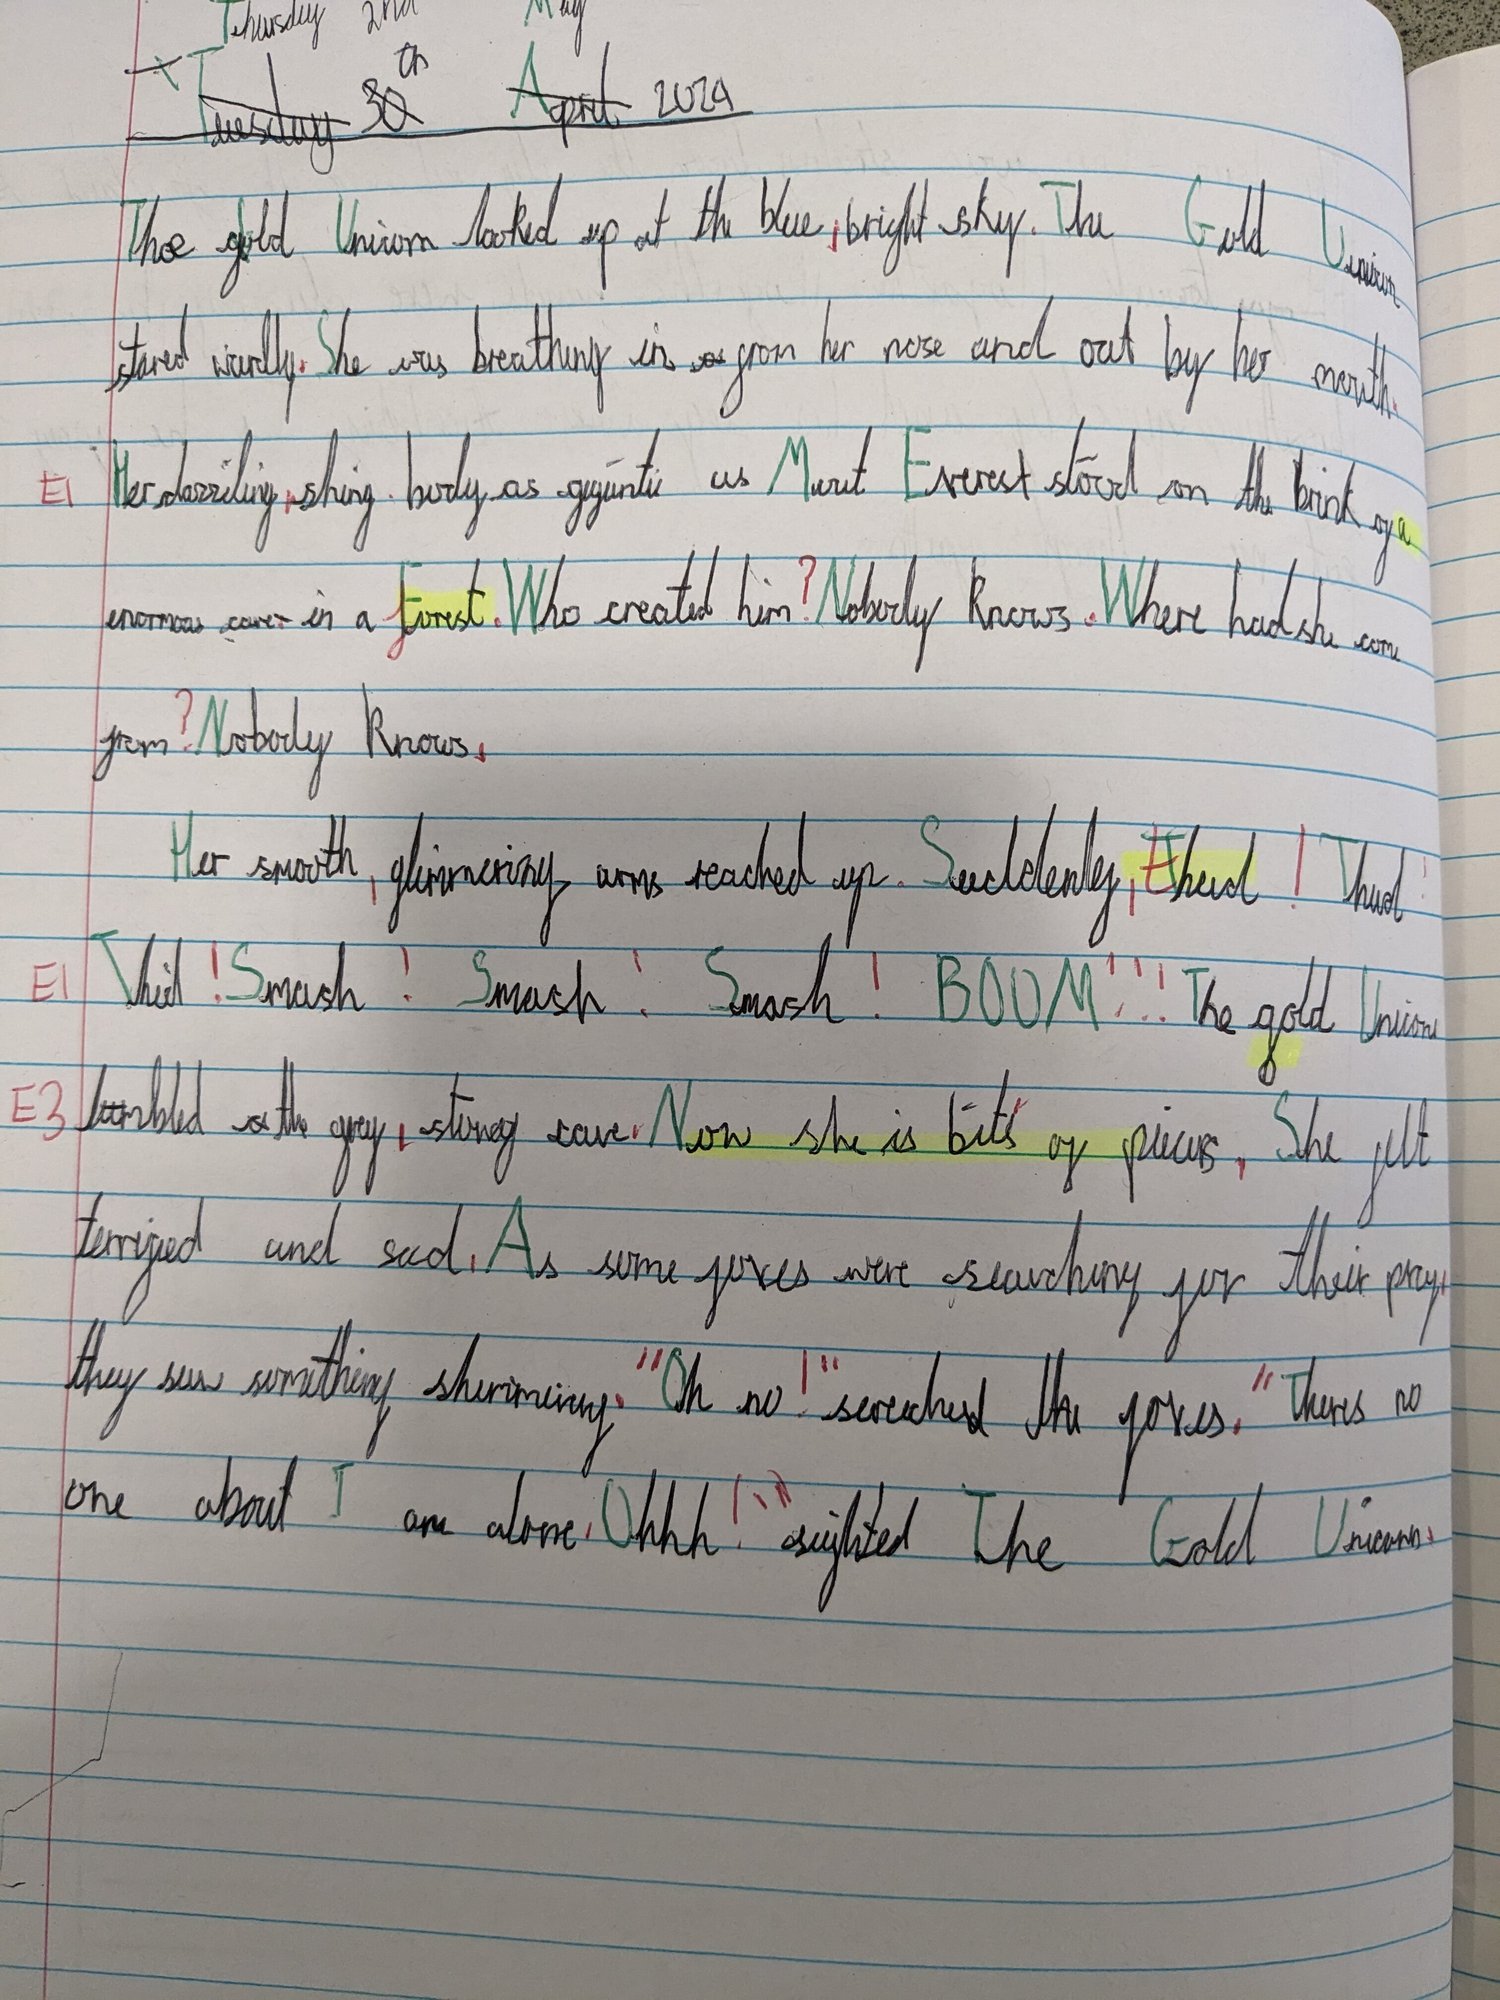 Thursday 2nd May
Tuesday 30th April 2024
The gold Unicorn looked up at the blue, bright sky. The Gold Unicorn
stared wirdly. She was breathing in from her nose and out by her mouth.
E1 Her dazziling, shing body as gigantic as Mount Everest stood on the brink of a
enormous cave in a Forest. Who created him? Nobody Knows. Where had she come
from? Nobody Knows.
Her smooth, glimmering arms reached up. Suddenly, Thud! Thud!
E1 Thud! Smash! Smash! Smash! BOOM!!! The gold Unicorn
E3 tumbled the grey, stoney cave. Now she is bits of pieces, She felt
terrified and sad. As some foxes were searching for their pray,
they saw something shimering. "Oh no!" screached the foxes. "Theres no
one about I am alone. Ohhh!" sighted The Gold Unicorn.